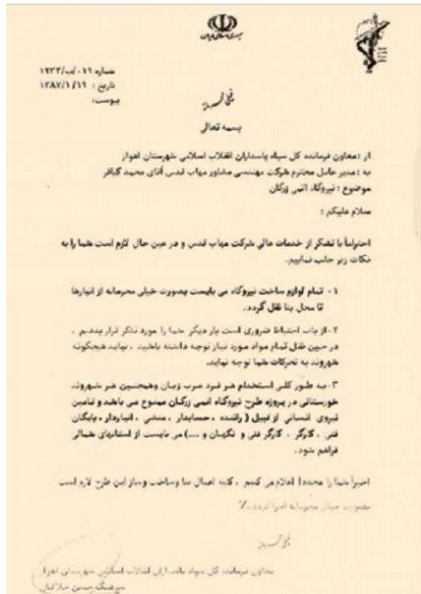 جمهوری اسلامی ایران
شماره ۰۱۹/ب/۱۹۳۳
تاریخ : ۱۳۸۷/۱/۱۹
پیوست:
خیلی محرمانه
بسمه تعالی
از : معاون فرمانده کل سپاه پاسداران انقلاب اسلامی شهرستان اهواز
به : مدیر عامل محترم شرکت مهندسی مشاور مهاب قدس آقای محمد کیافر
موضوع : نیروگاه اتمی زرگان
سلام علیکم :
احتراماً با تشکر از خدمات عالی شرکت مهاب قدس و در عین حال لازم است شما را به
نکات زیر جلب نماییم.
۱- تمام لوازم ساخت نیروگاه می بایست بصورت خیلی محرمانه از انبارها
تا محل بنا نقل گردد.
۲- از باب احتیاط ضروری است بار دیگر شما را مورد تذکر قرار بدهیم ،
در حین نقل تمام مواد مورد نیاز توجه داشته باشید ، نباید هیچگونه
شهروند به تحرکات شما توجه نماید.
۳- به طور کلی استخدام هر فرد عرب زبان وهمچنین هر شهروند
خوزستانی در پروژه طرح نیروگاه اتمی زرگان ممنوع می باشد و تامین
نیروی انسانی از قبیل ( راننده ، حسابدار ، منشی ، انباردار ، بایگان
فنی ، کارگر ، کارگر فنی و نگهبان و ....) می بایست از استانهای شمالی
فراهم شود.
اخیراً شما را مجدداً اعلام می کنیم ، کلیه اعمال بنا وساخت وساز این طرح لازم است
بصورت خیلی محرمانه اجرا گردد.
خیلی محرمانه
معاون فرمانده کل سپاه پاسداران انقلاب اسلامی شهرستان اهواز
سرهنگ حسن جلالیان